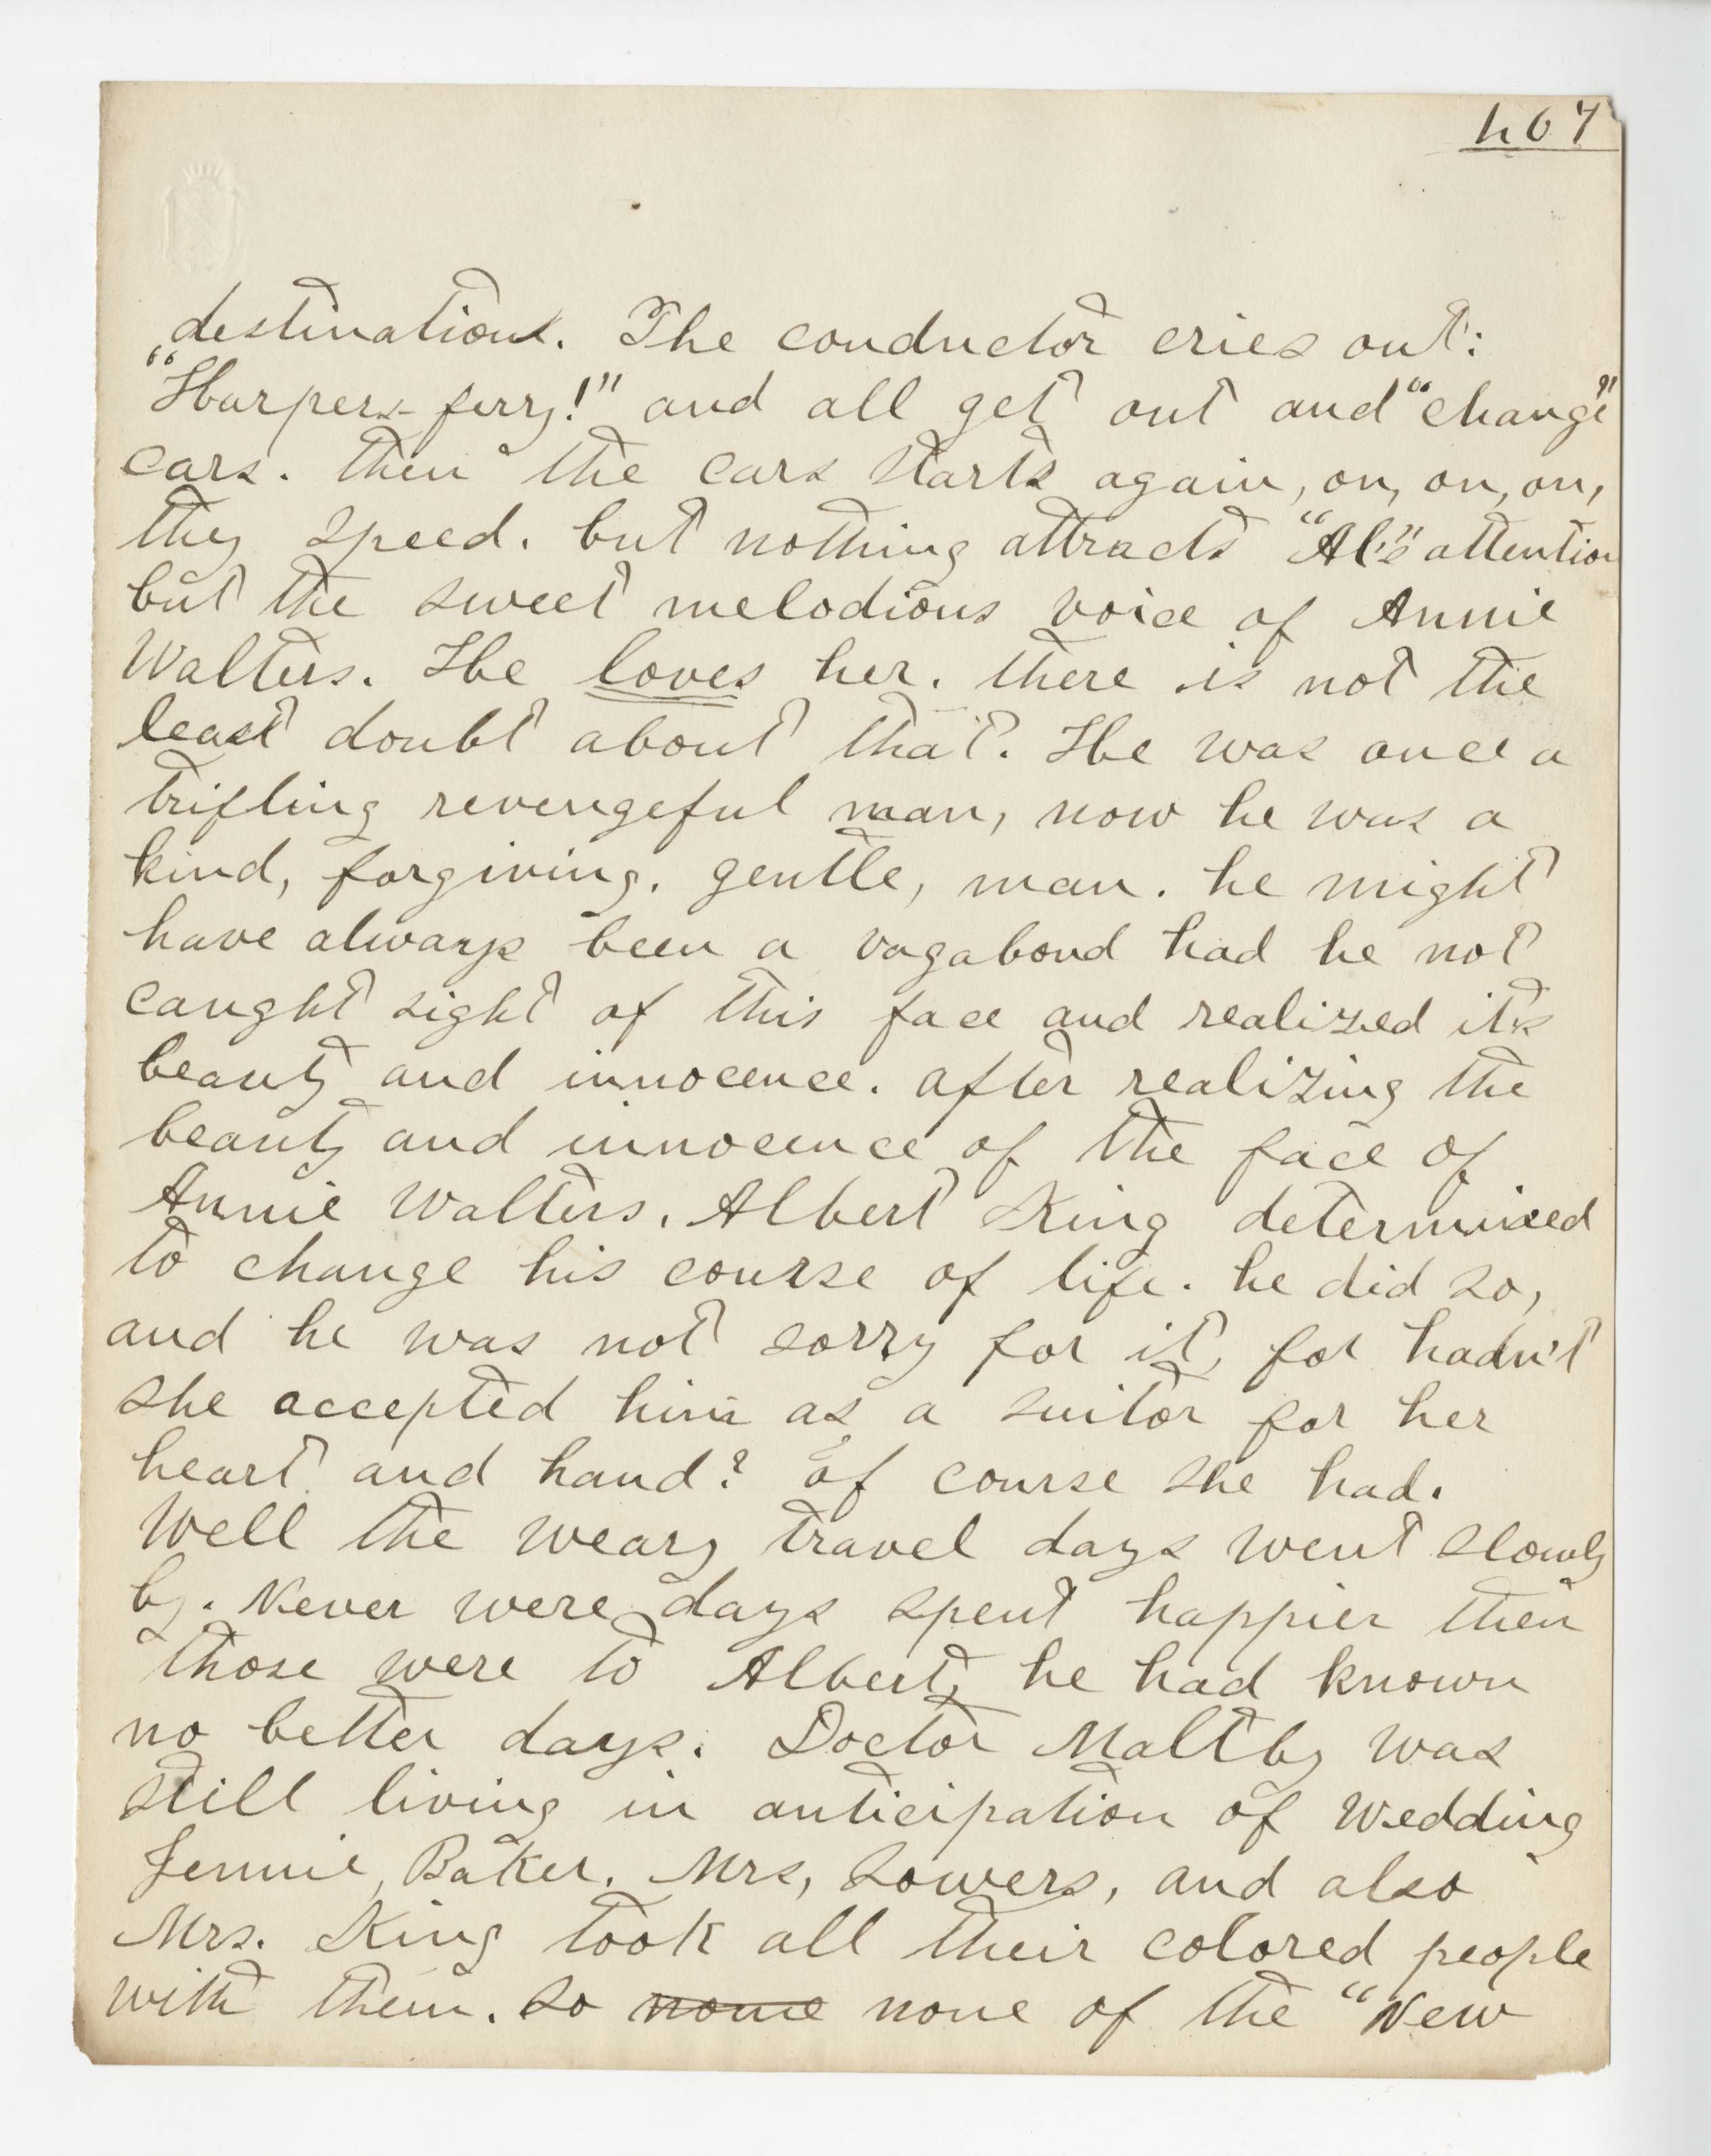 407
destinations. The conductor cries out:
"Harpers-ferry!" and all get out and "change"
cars. then the cars starts again, on, on, on,
they speed. but nothing attracts "Al's" attention
but the sweet melodious voice of Annie
Walters. He loves her. there is not the
least doubt about that. He was once a
trifling revengeful man, now he was a
kind, forgiving, gentle, man. he might
have always been a vagabond had he not
caught sight of this face and realized its
beauty and innocence. after realizing the
beauty and innocence of the face of
Annie Walters. Albert King determined
to change his course of life. he did so,
and he was not sorry for it, for hadn't
she accepted him as a suitor for her
heart and hand? of course she had.
Well the weary travel days went slowly
by. Never were days spent happier then
those were to Albert, he had known
no better days. Doctor Maltby was
still living in anticipation of wedding
Jennie Baker. Mrs, Sowers, and also
Mrs. King took all their colored people
with them. so none none of the "New